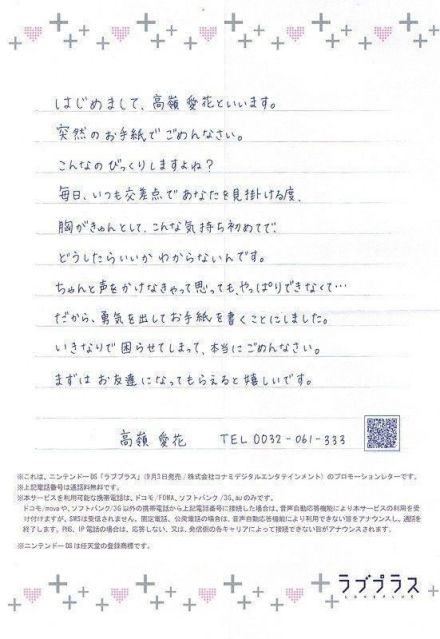 はじめまして、高嶺愛花といいます。
突然のお手紙でごめんなさい。
こんなのびっくりしますよね?
毎日、いつも交差点であなたを見掛ける度、
胸がきゅんとして、こんな気持ち初めてで、
どうしたらいいかわからないんです。
ちゃんと声をかけなきゃって思っても、やっぱりできなくて…
だから、勇気を出してお手紙を書くことにしました。
いきなりで困らせてしまって、本当にごめんなさい。
まずはお友達になってもらえると嬉しいです。
高嶺 愛花 TEL 0032-061-333
※これは、ニンテンドーDS「ラブプラス」(9月3日発売/株式会社コナミデジタルエンタテインメント)のプロモーションレターです。
※上記電話番号は通話料無料です。
※本サービスを利用可能な携帯電話は、ドコモ/FOMA、ソフトバンク/3G、auのみです。
ドコモ/movaや、ソフトバンク/3G以外の携帯電話から上記電話番号に接続した場合は、音声自動応答機能により本サービスの利用を受
け付けますが、SMSは受信されません。固定電話、公衆電話の場合は、音声自動応答機能により利用できない旨をアナウンスし、通話を
終了します。PHS、IP電話の場合は、応答しない、又は、発信側の各キャリアによって接続できない旨がアナウンスされます。
※ニンテンドーDSは任天堂の登録商標です。
ラブプラス
LOVEPLUS